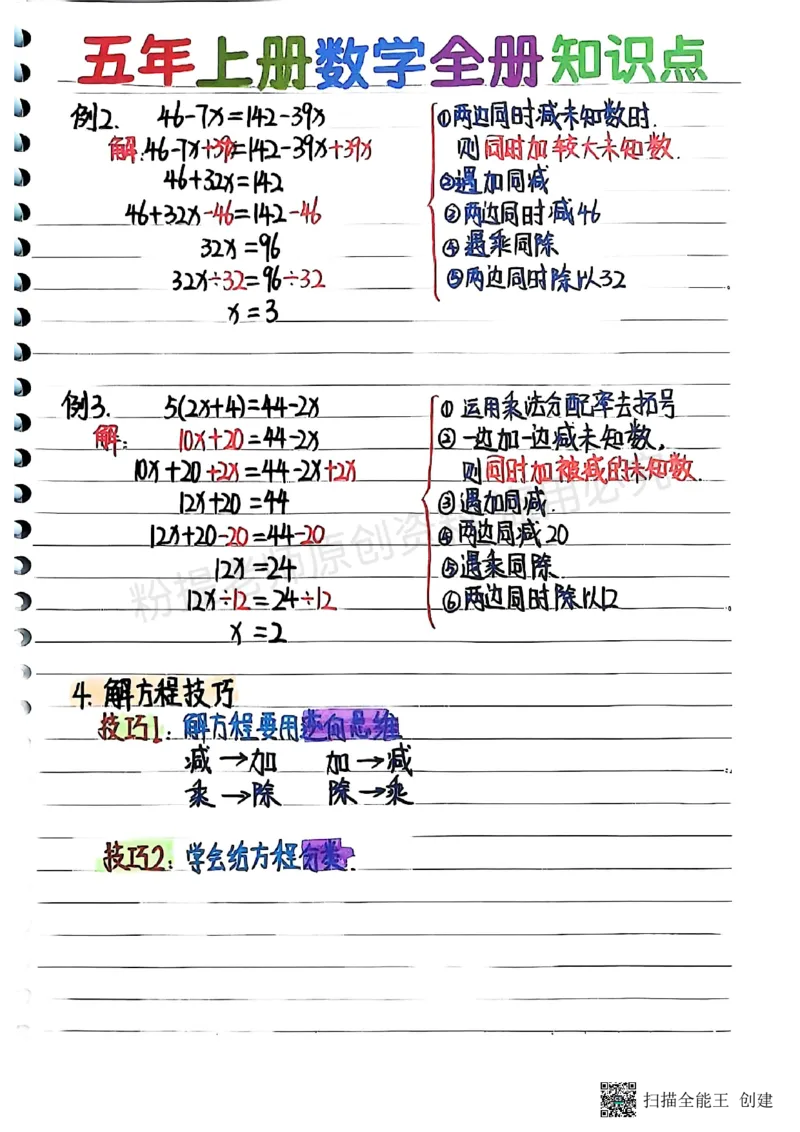 五年上册数学全册知识点
例2. 46-7x=142-39x
解:46-7x+39x=142-39x+39x
46+32x=142
46+32x-46=142-46
32x=96
32x÷32=96÷32
x=3
①两边同时减未知数时.
则同时加较大未知数.
②遇加同减
③两边同时减46
④遇乘同除
⑤两边同时除以32
例3. 5(2x+4)=44-2x
解: 10x+20=44-2x
10x+20+2x=44-2x+2x
12x+20=44
12x+20-20=44-20
12x=24
12x÷12=24÷12
x=2
①运用乘法分配率去括号
②一边加一边减未知数,
则同时加被减的未知数.
③遇加同减.
④两边同减20
⑤遇乘同除.
⑥两边同时除以12
4.解方程技巧
技巧1:解方程要用逆向思维
减→加 加→减
乘→除 除→乘
技巧2:学会给方程分类.
扫描全能王 创建